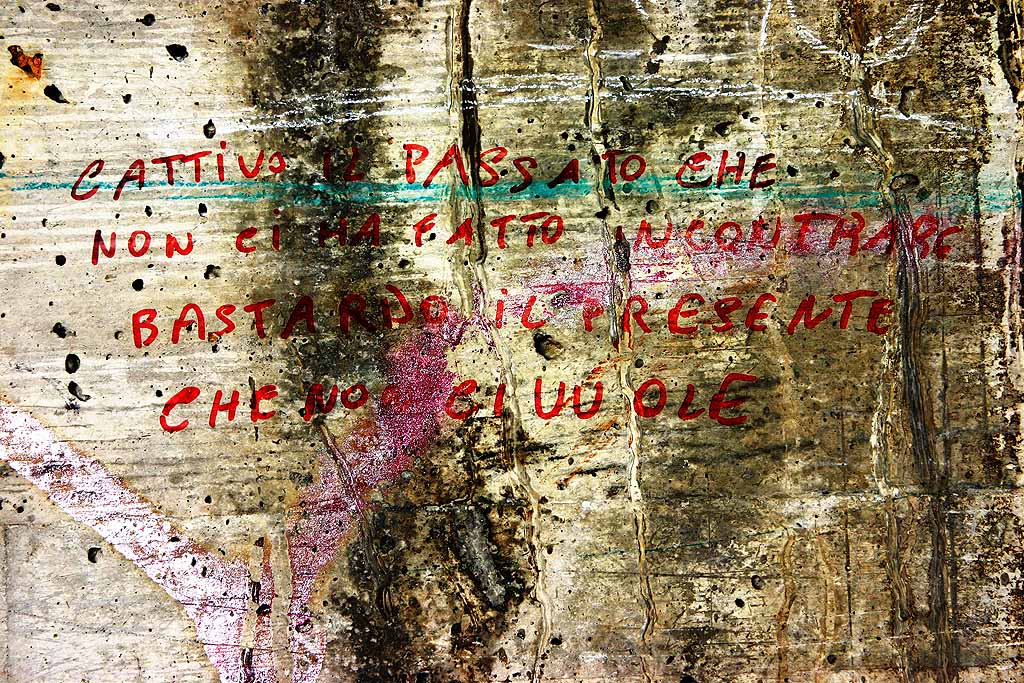 CATTIVO IL PASSATO CHE
NON Ci HA FATTO INCONTRARE
BASTARDO iL PRESENTE
CHE NON Ci VUOLE